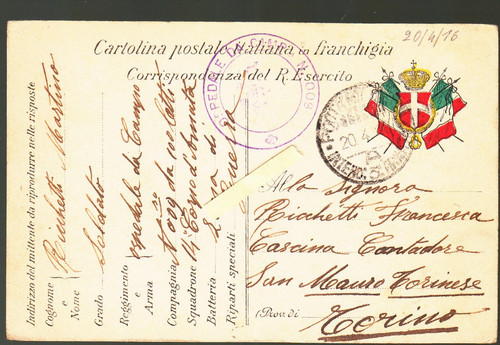 20/4/16
Cartolina postale italiana in franchigia
Corrispondenza del R. Esercito
OSPEDALETTO DA CAMPO N. 009
20.4
Alla Signora
Richetti Francesca
Cascina Contadore
San Mauro Torinese
(Prov. di Torino
Indirizzo del mittente da riprodurre nelle risposte
Cognome e Nome Richetti Martino
Grado Soldato
Reggimento e Arma Ospedale da Campo
Compagnia N° 009 da
Squadrone Corpo d'Armata
Batteria Zona di
Riparti speciali Guerra